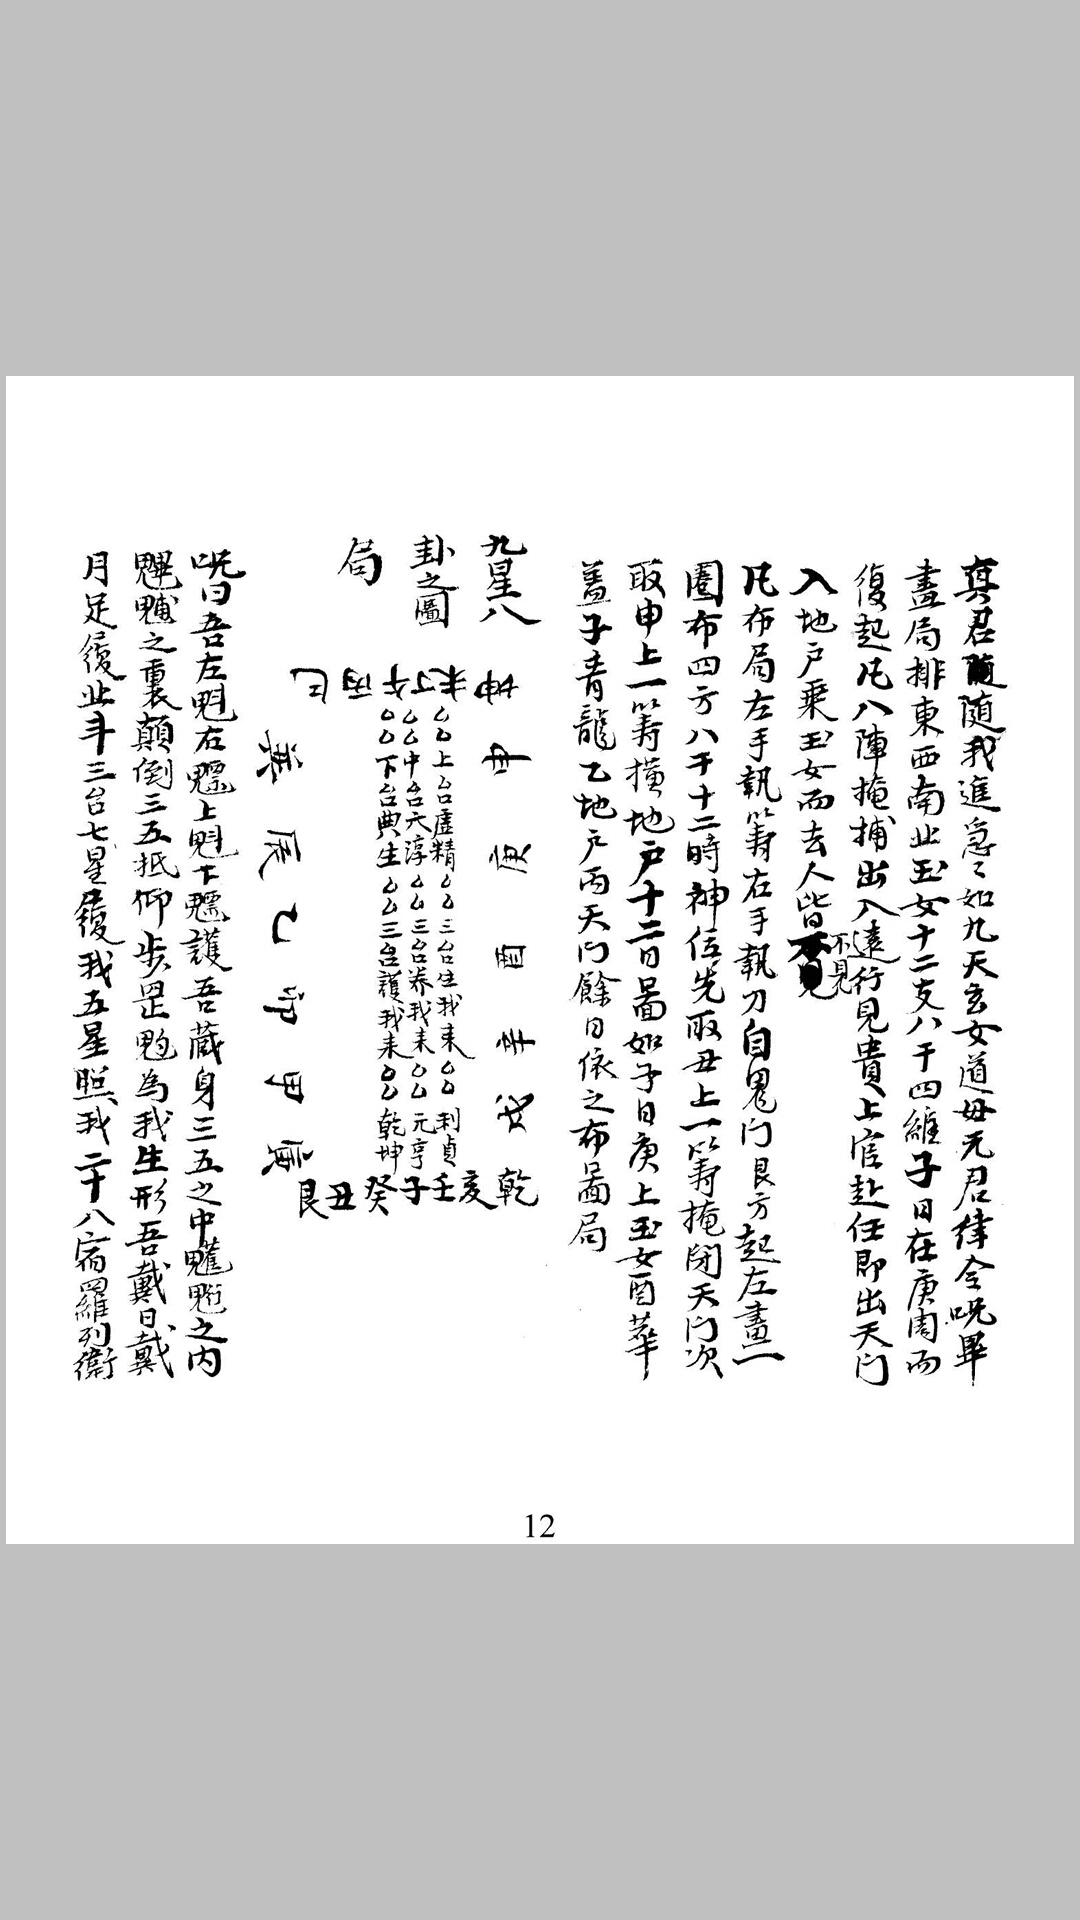 真君隨我進急々如九天玄女道母元君律令呪畢
畫局排東西南北玉女十二支八干四維子日在庚周而
復起凡八陣掩捕出入遠行見貴上官赴任即出天门
入地户乘玉女而去人皆不見
凡布局左手執筭右手執刀自鬼门艮方起左畫一
圈布四方八干十二時神位先取丑上一筭掩閉天门次
取申上一筭橫地户十二日啚如子日庚上玉女酉華
蓋子青龍乙地户丙天门餘日依之布啚局
九星八
卦之圖
局
坤未丁午丙巳
申庚酉辛戌
乾亥壬子癸丑艮
巽辰乙卯甲寅
上台虛精 三台生我来 利貞
中台六淳 三台养我来 元亨
下台典生 三台護我来 乾坤
呪曰吾左魁右上魁下護吾蔵身三五之中之内
之裏顛倒三五抵仰步罡為我生形吾戴日戴
月足履北斗三台七星履我五星照我二十八宿羅列衛
12